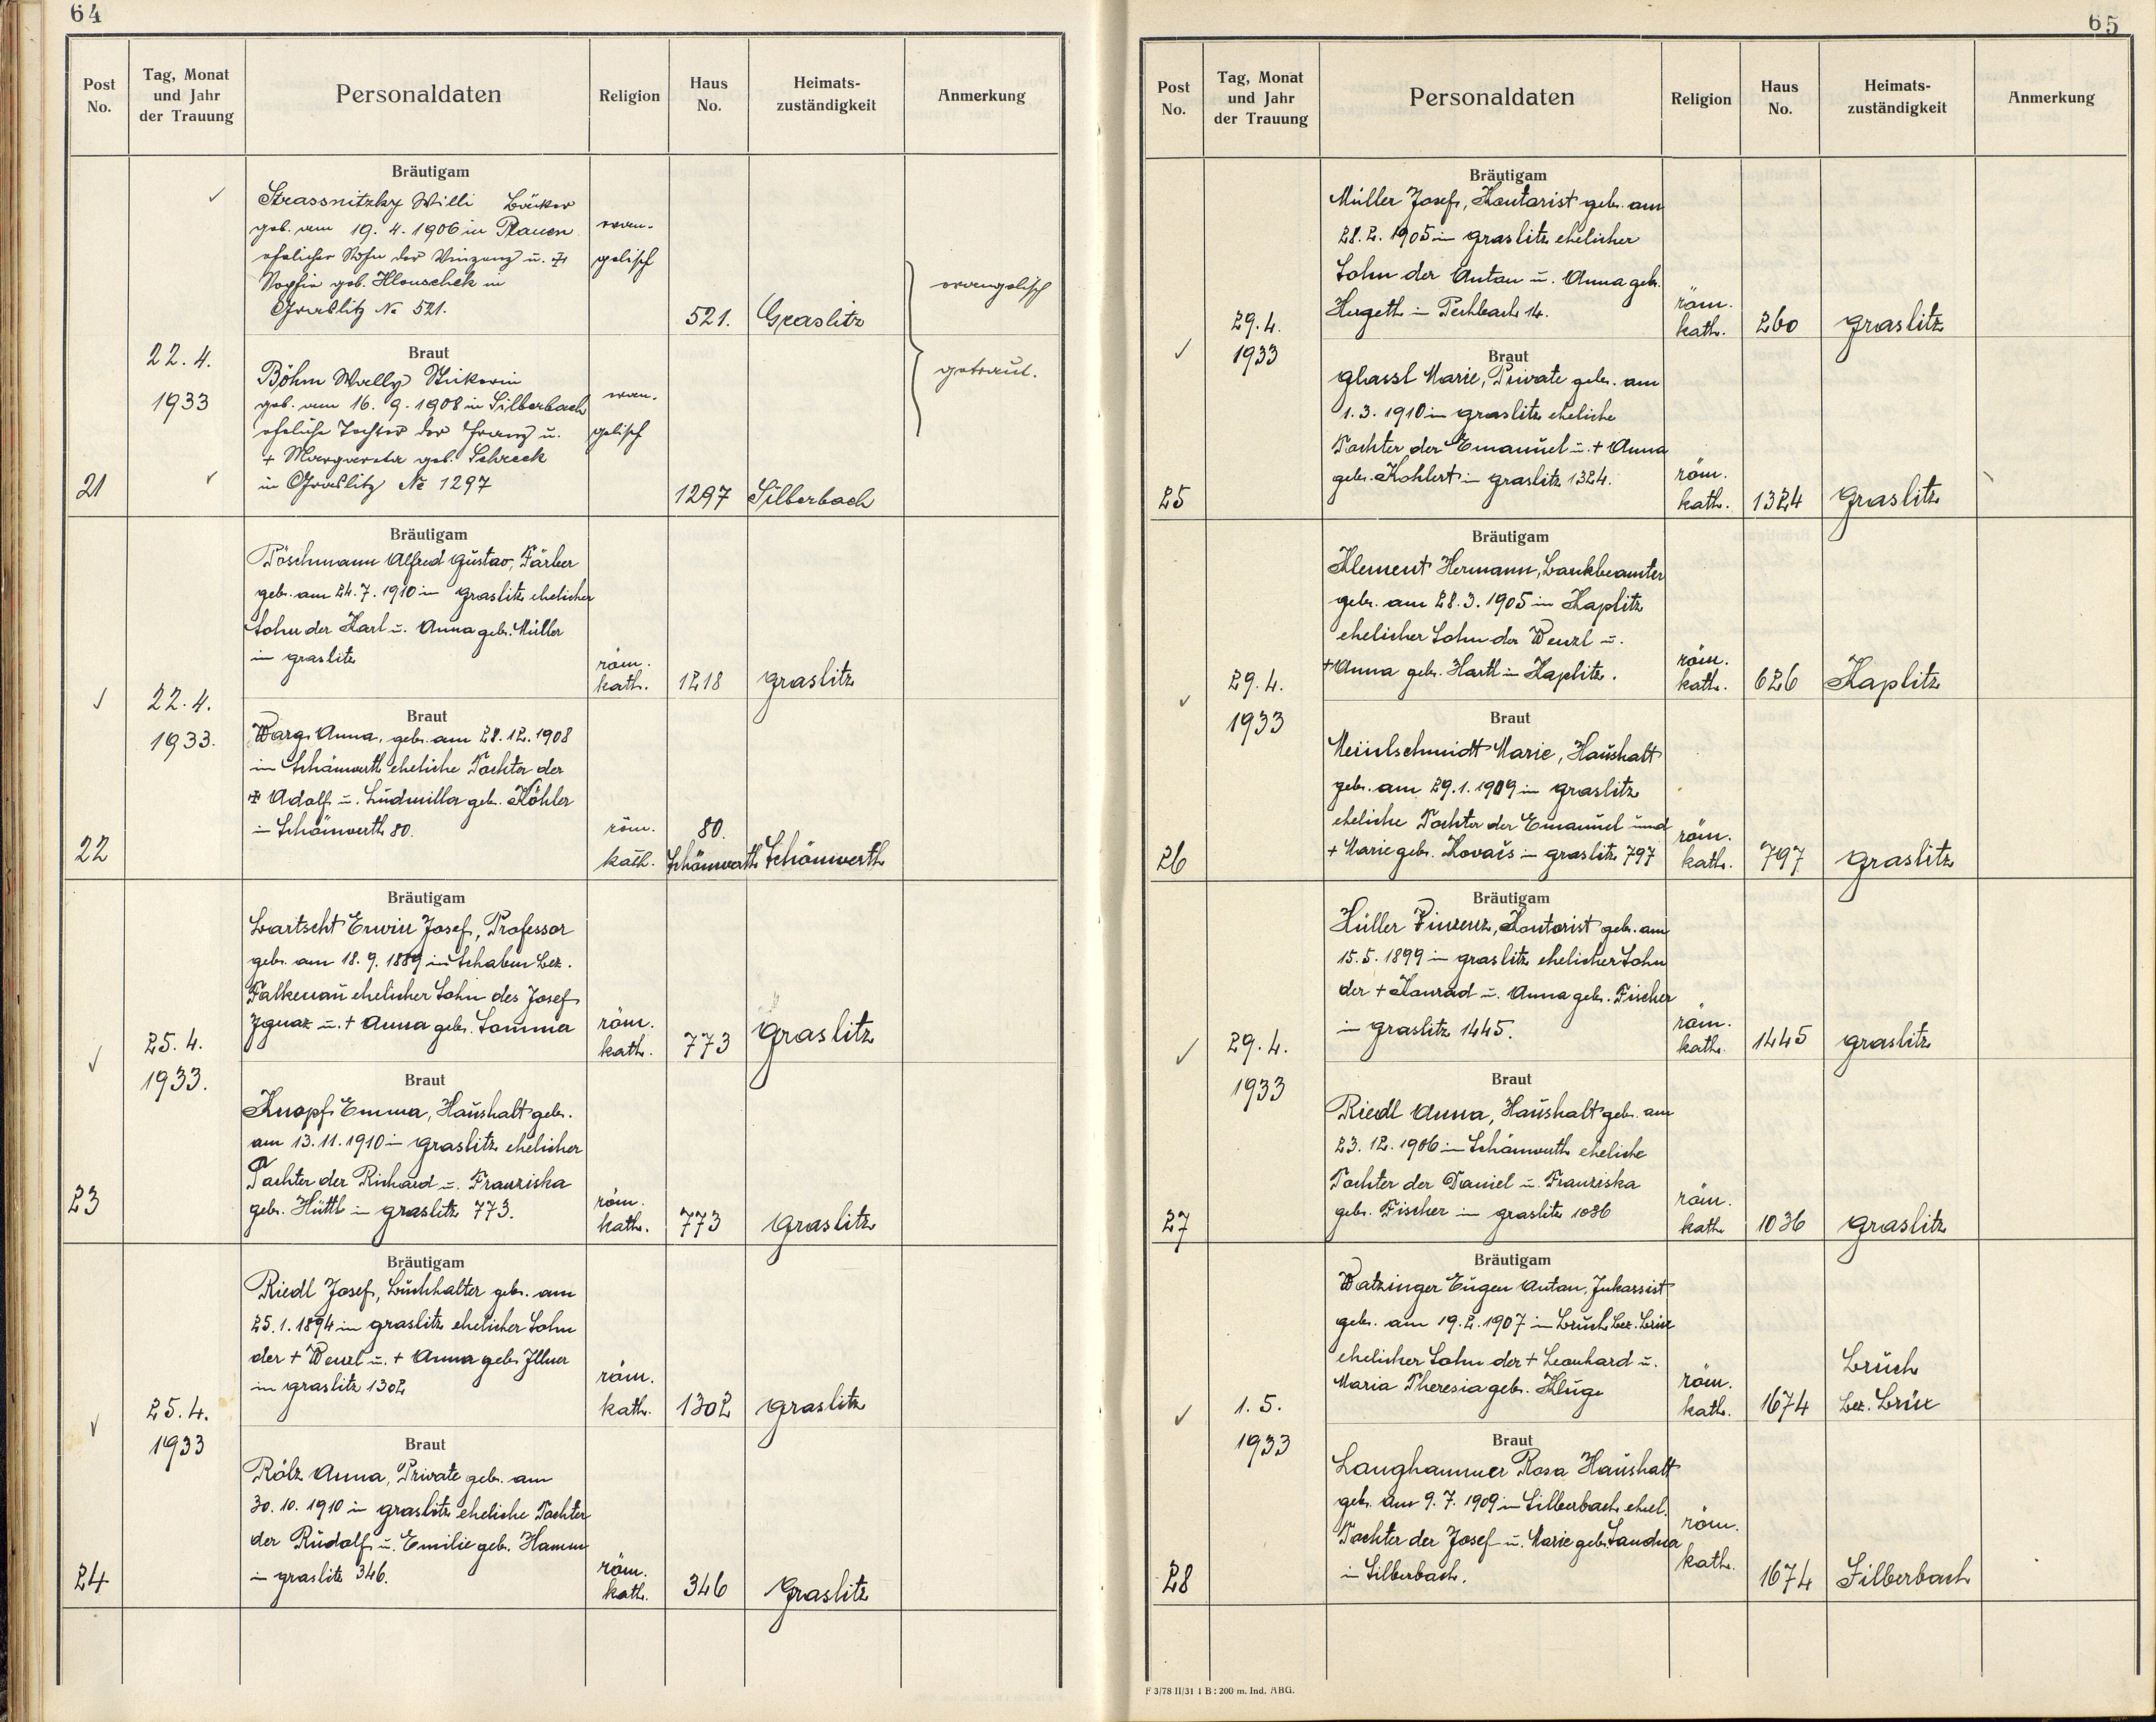 64
Post No.
Tag, Monat und Jahr der Trauung
Personaldaten
Religion
Haus No.
Heimats-zuständigkeit
Anmerkung
Bräutigam
Strassnitzky Willi Bäcker
geb. am 19. 4. 1906 in Plauen
ehelicher Sohn der Vinzenz u. +
Sophie geb. Hlouschek in
Graslitz No 521.
evan-
gelisch
521.
Graslitz
evangelisch
getraut.
22. 4.
1933
Braut
Böhm Wally Stickerin
geb. am 16. 9. 1908 in Silberbach
eheliche Tochter der Franz u.
+ Margareta geb. Schreck
in Graslitz No 1297
evan-
gelisch
21
1297
Silberbach
Bräutigam
Pöschmann Alfred Gustav, Färber
geb. am 24. 7. 1910 in Graslitz ehelicher
Sohn der Karl u. Anna geb. Müller
in Graslitz
röm.
kath.
1218
Graslitz
22. 4.
1933.
Braut
Warg Anna, geb. am 28. 12. 1908
in Schönwerth eheliche Tochter der
+ Adolf u. Ludmilla geb. Köhler
in Schönwerth 80.
22
röm.
kath.
80.
Schönwerth
Schönwerth
Bräutigam
Bartscht Erwin Josef, Professor
geb. am 18. 9. 1889 in Schaben Bez.
Falkenau ehelicher Sohn des Josef
Ignaz u. + Anna geb. Sommer
röm.
kath.
773
Graslitz
25. 4.
1933.
Braut
Knopf Emma, Haushalt geb.
am 13. 11. 1910 in Graslitz ehelicher
Tochter der Richard u. Franziska
geb. Hüttl in Graslitz 773.
23
röm.
kath.
773
Graslitz
Bräutigam
Riedl Josef, Buchhalter geb. am
25. 1. 1894 in Graslitz ehelicher Sohn
der + Wenzl u. + Anna geb. Illner
in Graslitz 1302
röm.
kath.
1302
Graslitz
25. 4.
1933
Braut
Rölz Anna, Private geb. am
30. 10. 1910 in Graslitz eheliche Tochter
der Rudolf u. Emilie geb. Hamm
in Graslitz 346.
24
röm.
kath.
346
Graslitz
65
Post No.
Tag, Monat und Jahr der Trauung
Personaldaten
Religion
Haus No.
Heimats-zuständigkeit
Anmerkung
Bräutigam
Müller Josef, Kontorist geb. am
28. 2. 1905 in Graslitz ehelicher
Sohn der Anton u. Anna geb.
Hergeth in Pechbach 14.
röm.
kath.
260
Graslitz
29. 4.
1933
Braut
Glassl Marie, Private geb. am
1. 3. 1910 in Graslitz eheliche
Tochter der Emanuel u. + Anna
geb. Kohlert in Graslitz 1324.
25
röm.
kath.
1324
Graslitz
Bräutigam
Klement Hermann, Bankbeamter
geb. am 28. 3. 1905 in Kaplitz
ehelicher Sohn der Wenzl u.
+ Anna geb. Hartl in Kaplitz.
röm.
kath.
626
Kaplitz
29. 4.
1933
Braut
Meinlschmidt Marie, Haushalt
geb. am 29. 1. 1909 in Graslitz
eheliche Tochter der Emanuel und
+ Marie geb. Kovačs in Graslitz 797
26
röm.
kath.
797
Graslitz
Bräutigam
Hüller Vinzenz, Kontorist geb. am
15. 5. 1899 in Graslitz ehelicher Sohn
der + Konrad u. Anna geb. Fischer
in Graslitz 1445.
röm.
kath.
1445
Graslitz
29. 4.
1933
Braut
Riedl Anna, Haushalt geb. am
23. 12. 1906 in Schönwerth eheliche
Tochter der Daniel u. Franziska
geb. Fischer in Graslitz 1036
27
röm.
kath
1036
Graslitz
Bräutigam
Watzinger Eugen Anton, Inkassist
geb. am 19. 2. 1907 in Bruch Bez. Brüx
ehelicher Sohn der + Leonhard u.
Maria Theresia geb. Kluge
röm.
kath.
1674
Bruch
Bez. Brüx
1. 5.
1933
Braut
Langhammer Rosa Haushalt
geb. am 9. 7. 1909 in Silberbach ehel.
Tochter der Josef u. Marie geb. Sandner
in Silberbach.
28
röm.
kath.
1674
Silberbach
F 3/78 II/31 1 B: 200 m. Ind. ABG.